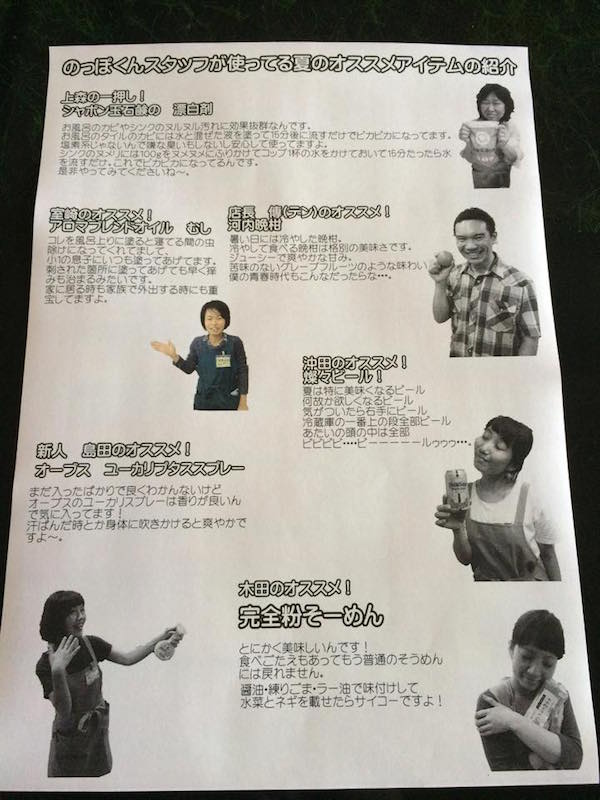 のっぽくんスタッフが使ってる夏のオススメアイテムの紹介
上森の一押し！
シャボン玉石鹸の　漂白剤
お風呂のカビやシンクのヌルヌル汚れに効果抜群なんです。
お風呂のタイルのカビには水と混ぜた液を塗って15分後に流すだけでピカピカになってます。
塩素系じゃないんで嫌な臭いもしないし安心して使ってますよ。
シンクのヌメリには100gをヌメヌメにふりかけてコップ1杯の水をかけておいて15分たったら水
を流すだけ。これでピカピカになってるんです。
是非やってみてくださいね～。
室崎のオススメ！
アロマブレンドオイル　むし
コレを風呂上りに塗ると寝てる間の虫
除けになってくれてまして、
小1の息子にいつも塗ってあげてます。
刺された箇所に塗ってあげても早く痒
みも治まるみたいです。
家に居る時も家族で外出する時にも重
宝してますよ。
店長　傳(デン)のオススメ！
河内晩柑
暑い日には冷やした晩柑。
冷やして食べる晩柑は格別の美味さです。
ジューシーで爽やかな甘み。
苦味のないグレープフルーツのような味わい
僕の青春時代もこんなだったらな･･･。
沖田のオススメ！
燦々ビール！
夏は特に美味くなるビール
何故か欲しくなるビール
気がついたら右手にビール
冷蔵庫の一番上の段全部ビール
あたいの頭の中は全部
ビビビビ････ビーーーーールゥゥゥ･･･。
新人　島田のオススメ！
オーブス　ユーカリプタススプレー
まだ入ったばかりで良くわかんないけど
オーブスのユーカリスプレーは香りが良いん
で気に入ってます！
汗ばんだ時とか身体に吹きかけると爽やかで
すよ～。
木田のオススメ！
完全粉そーめん
とにかく美味しいんです！
食べごたえもあってもう普通のそうめん
には戻れません。
醤油・練りごま・ラー油で味付けして
水菜とネギを載せたらサイコーですよ！